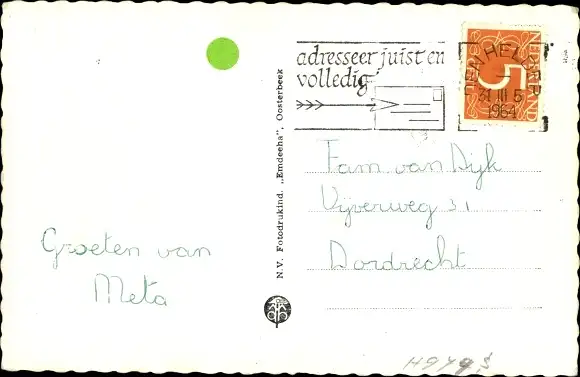 adresseer juist en
volledig
DEN HELDER
31 III 5
1964
NEDERLAND
5
Fam. van Dijk
Vijverweg 31
Dordrecht
Groeten van
Meta
N.V. Fotodrukind. „Emdeeha", Oosterbeek